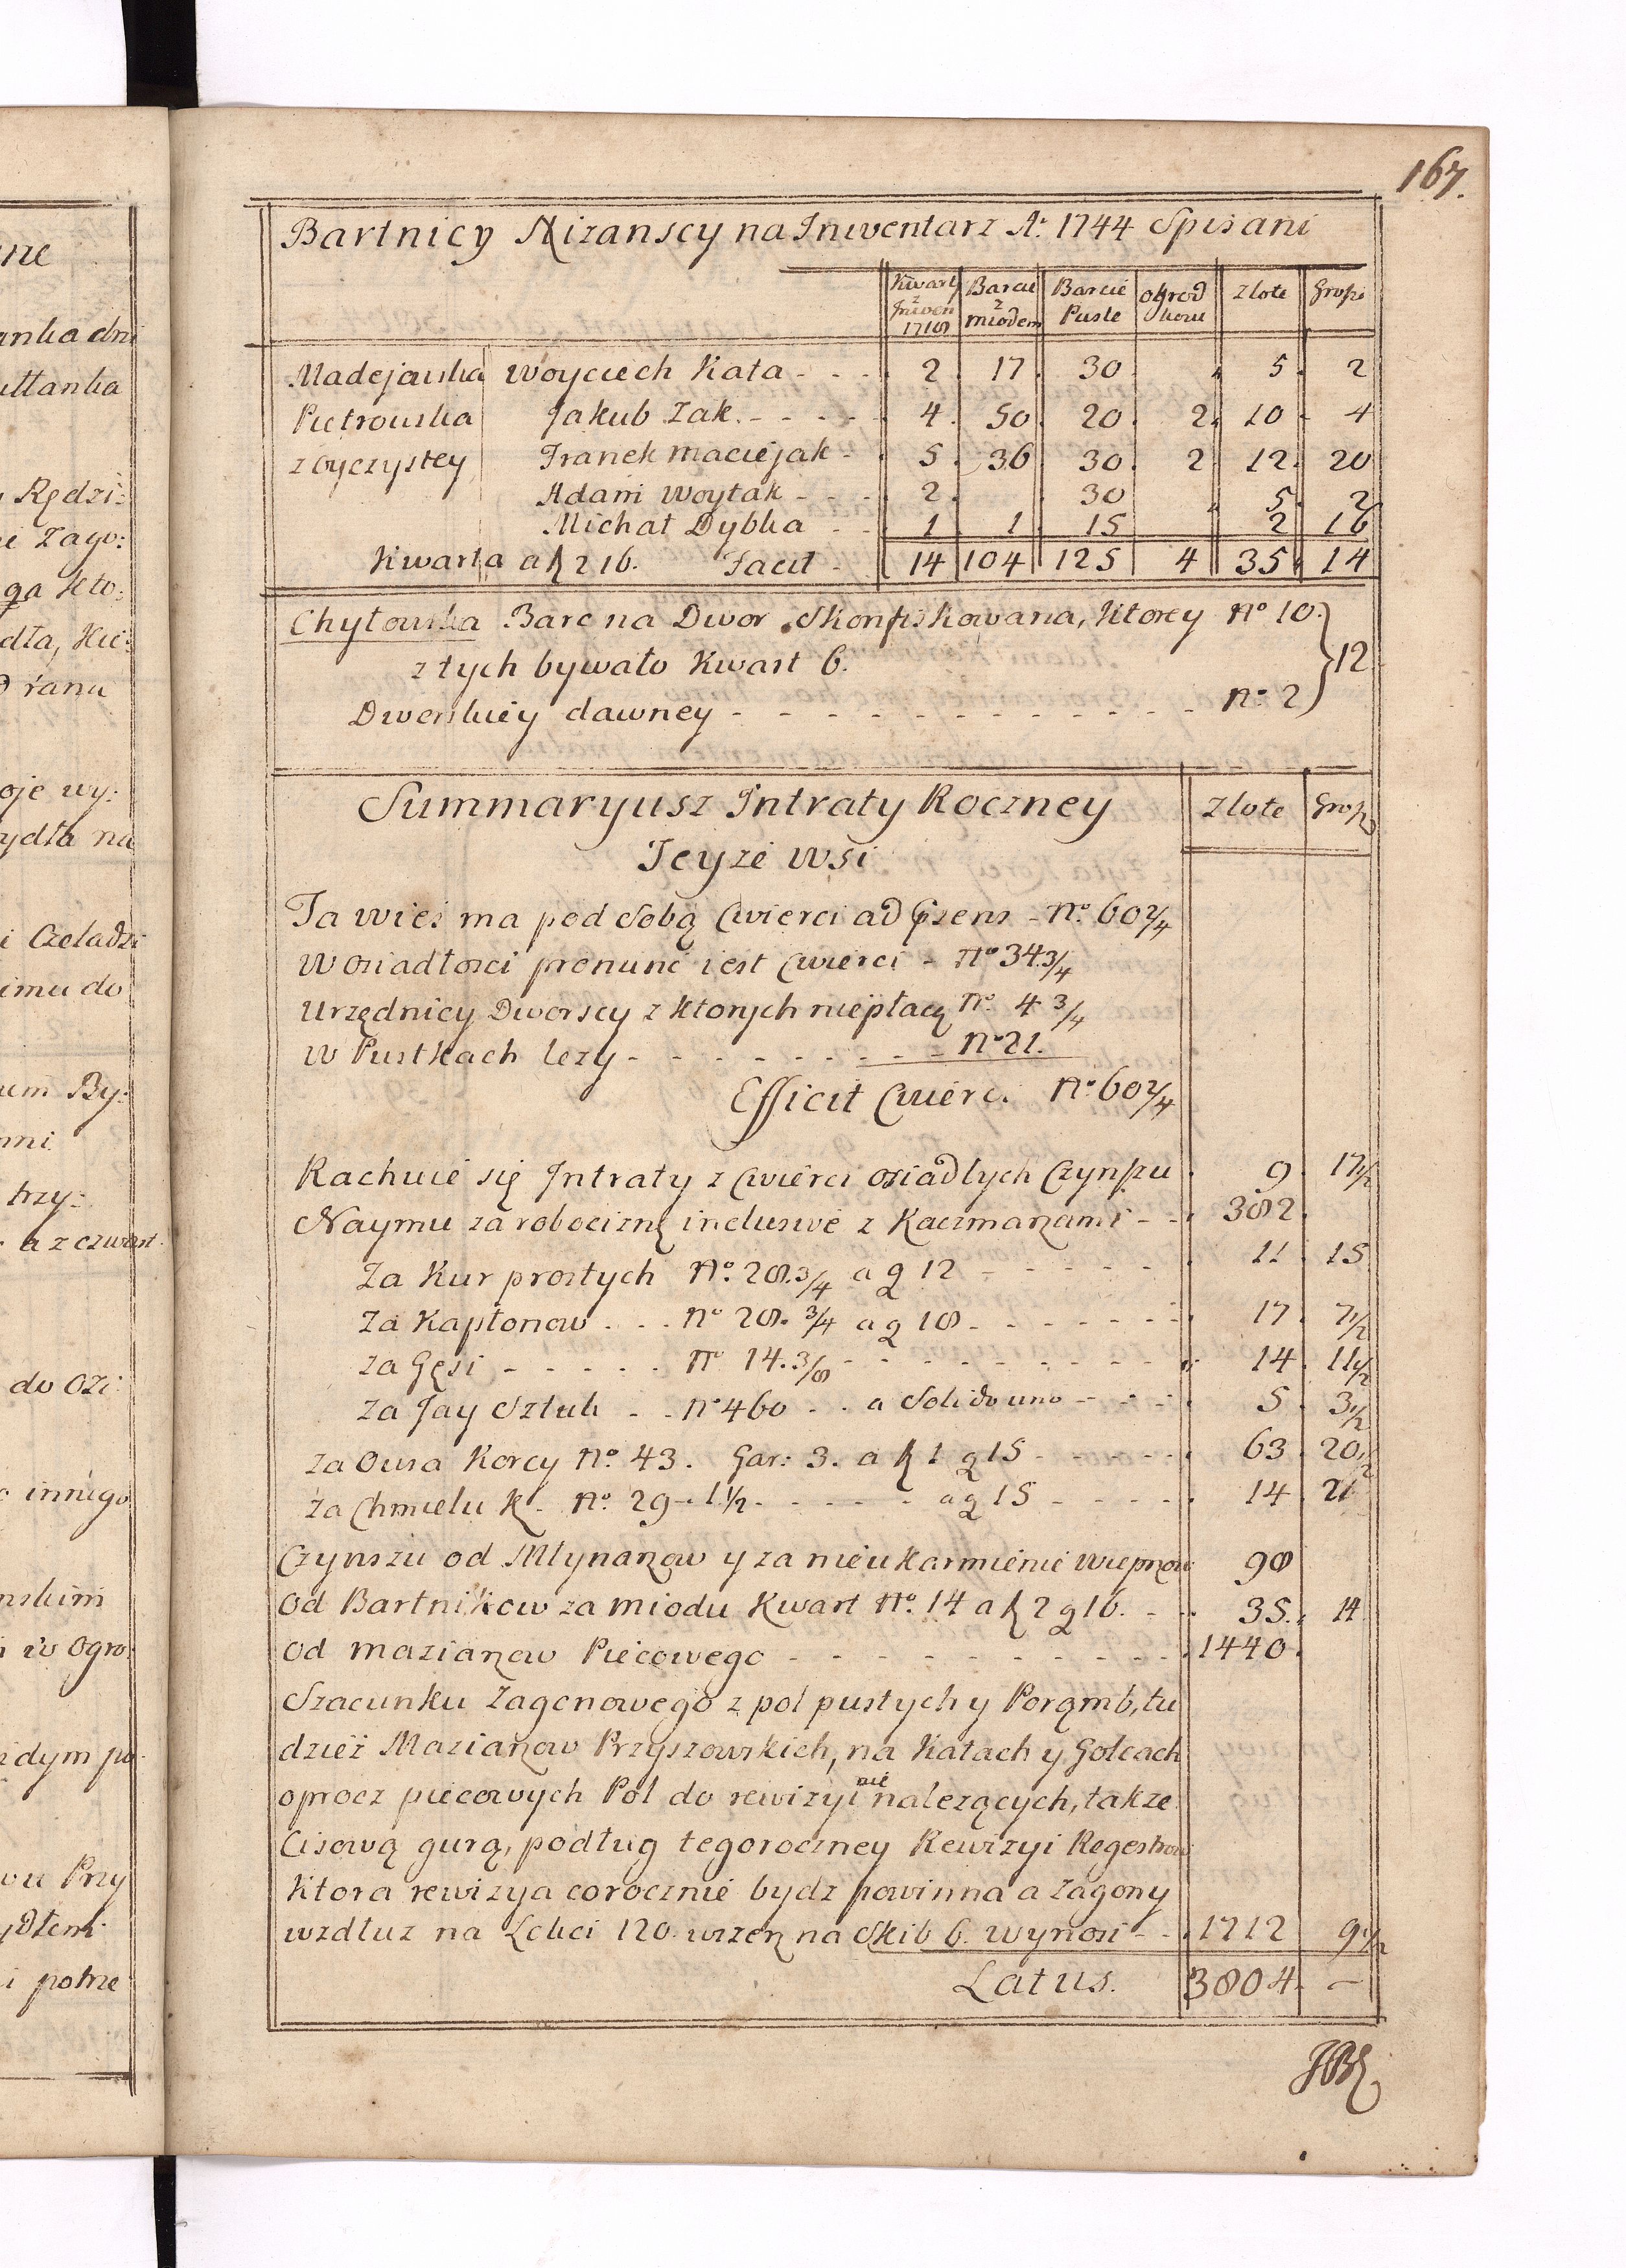 167.
Bartnicy Niżanscy na Inwentarz A: 1744 Spisani
Kwarty z Inwen 1718 | Barcie z miodem | Barcie Puste | ogrod kow | Złote | Groszi
Madejauska Woyciech Kata - - - 2 . 17 . 30 . „ 5 . 2
Pietrouska Jakub Zak. - - - - 4 . 50 . 20 . 2 . 10 - 4
z oyczystey Franek Maciejak - 5 . 36 . 30 . 2 12 . 20
Adam Woytak - - - 2 . 30 „ 5 . 2
Michał Dybka - - 1 1 . 15 2 16
Kwarta a f 2 16. Facit - 14 104 125 4 35 . 14
Chytouska Barc na Dwor Skonfiskowana, Ktorey No 10.
z tych bywało Kwart 6. } 12
Dworskiey dawney - - - - - - - - - - - - No 2
Summaryusz Intraty Roczney | Złote | Groszi
Teyże wsi
Ta wieś ma pod Sobą Cwierci ad Czens - No. 60 2/4
W osiadłosci pronunc iest Cwierci - No 34. 3/4
Urzędnicy Dworscy z ktorych niepłacą No. 4 3/4
w Pustkach leży - - - - - - - - - No 21.
Efficit Cwierc. No. 60 2/4
Rachuie się Intraty z Cwierci osiadlych Czynszu . 9 . 17 1/2
Naymu za robociznę inclusivé z Kaczmarzami - - 382 .
Za Kur prostych No. 28. 3/4 a g 12 - - - - - 11 . 15
Za Kapłonow . . . No 28. 3/4 a g 18 - - - - - - - 17 . 7 1/2
za Gęsi - - - - - No 14. 3/8 - - - - - - - - - 14 . 11 1/2
Za Jay Sztuk - - No 460 - . a Solido uno - - - - 5 . 3 1/2
za Ousa Korcy No. 43. Gar: 3. a f 1 g 15 - - - - - 63 . 20 1/2
za Chmielu K. No. 29 - 1 1/2 . - - - - - a g 15 - - - - 14 . 21
Czynszu od Mlynarzow y za nieukarmienie Wieprzow 98
od Bartnikow za miodu Kwart No. 14 a f 2 g 16. - - 35. . 14
od maziarzow Piecowego - - - - - - - - - - - 1440.
Szacunku Zagonowego z pol pustych y Porąmb, tu
dzież Maziarzow Przyszowskich, na Katach y Golcach
oprocz piecowych Pol do rewizyi nie nalezących, takze
Cisową gurą, podług tegoroczney Rewizyi Regestrow
Ktora rewizya corocznie bydz powinna a Zagony
wzdłuz na Łokci 120. wszerz na Skib 6. wynosi - - 1712 9 1/2
Latus. 3804. -